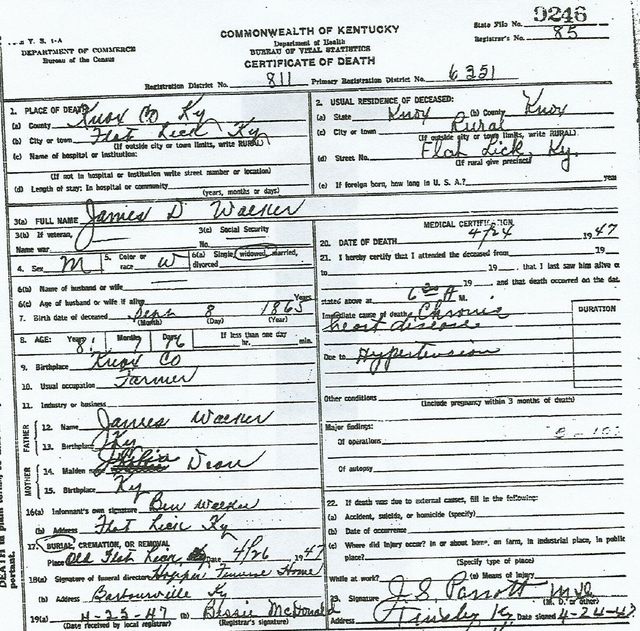 V. S. 1-A
DEPARTMENT OF COMMERCE
Bureau of the Census
COMMONWEALTH OF KENTUCKY
Department of Health
BUREAU OF VITAL STATISTICS
CERTIFICATE OF DEATH
State File No. 9246
Registrar's No. 85
Registration District No. 811 Primary Registration District No. 6351
1. PLACE OF DEATH Knox Co Ky
(a) County
(b) City or town Flat Lick Ky
(If outside city or town limits, write RURAL)
(c) Name of hospital or institution:
(If not in hospital or institution write street number or location)
(d) Length of stay: In hospital or community
(years, months or days)
2. USUAL RESIDENCE OF DECEASED:
(a) State Knox (b) County Knox
(c) City or town Rural
(If outside city or town limits, write RURAL)
(d) Street No. Flat Lick, Ky.
(If rural give precinct)
(e) If foreign born, how long in U. S. A.? years
3(a) FULL NAME James D Walker
3(b) If veteran,
Name war
3(c) Social Security
No.
4. Sex M 5. Color or race W 6(a) Single, widowed, married, divorced
6(b) Name of husband or wife
6(c) Age of husband or wife if alive Years
7. Birth date of deceased Sept 8 1865
(Month) (Day) (Year)
8. AGE: Years 81 Months Days 16 If less than one day hr. min.
9. Birthplace Knox Co
10. Usual occupation Farmer
11. Industry or business
FATHER
12. Name James Walker
13. Birthplace Ky
MOTHER
14. Maiden name Dean
15. Birthplace Ky
16(a) Informant's own signature Ben Walker
(b) Address Flat Lick Ky
17. BURIAL, CREMATION, OR REMOVAL
Place Old Flat Lick, Date 4/26 1947
18(a) Signature of funeral director Hopper Funeral Home
(b) Address Barbourville Ky
19(a) 4-25-47 (b) Bessie McDonald
(Date received by local registrar) (Registrar's signature)
MEDICAL CERTIFICATION
20. DATE OF DEATH 4/24 1947
21. I hereby certify that I attended the deceased from 19
to 19 that I last saw him alive on
19 and that death occurred on the date
stated above at 6 00 A M.
Immediate cause of death Chronic
heart disease
DURATION
Due to Hypertension
Other conditions
(Include pregnancy within 3 months of death)
Major findings:
Of operations
Of autopsy
22. If death was due to external causes, fill in the following:
(a) Accident, suicide, or homicide (specify)
(b) Date of occurrence
(c) Where did injury occur? In or about home, on farm, in industrial place, in public
place?
(Specify type of place)
While at work? (e) Means of injury
23. Signature J. S. Parrott M D
(M. D. or other)
Address Tinsley Ky Date signed 4-24-47
DEATH in plain
portant.